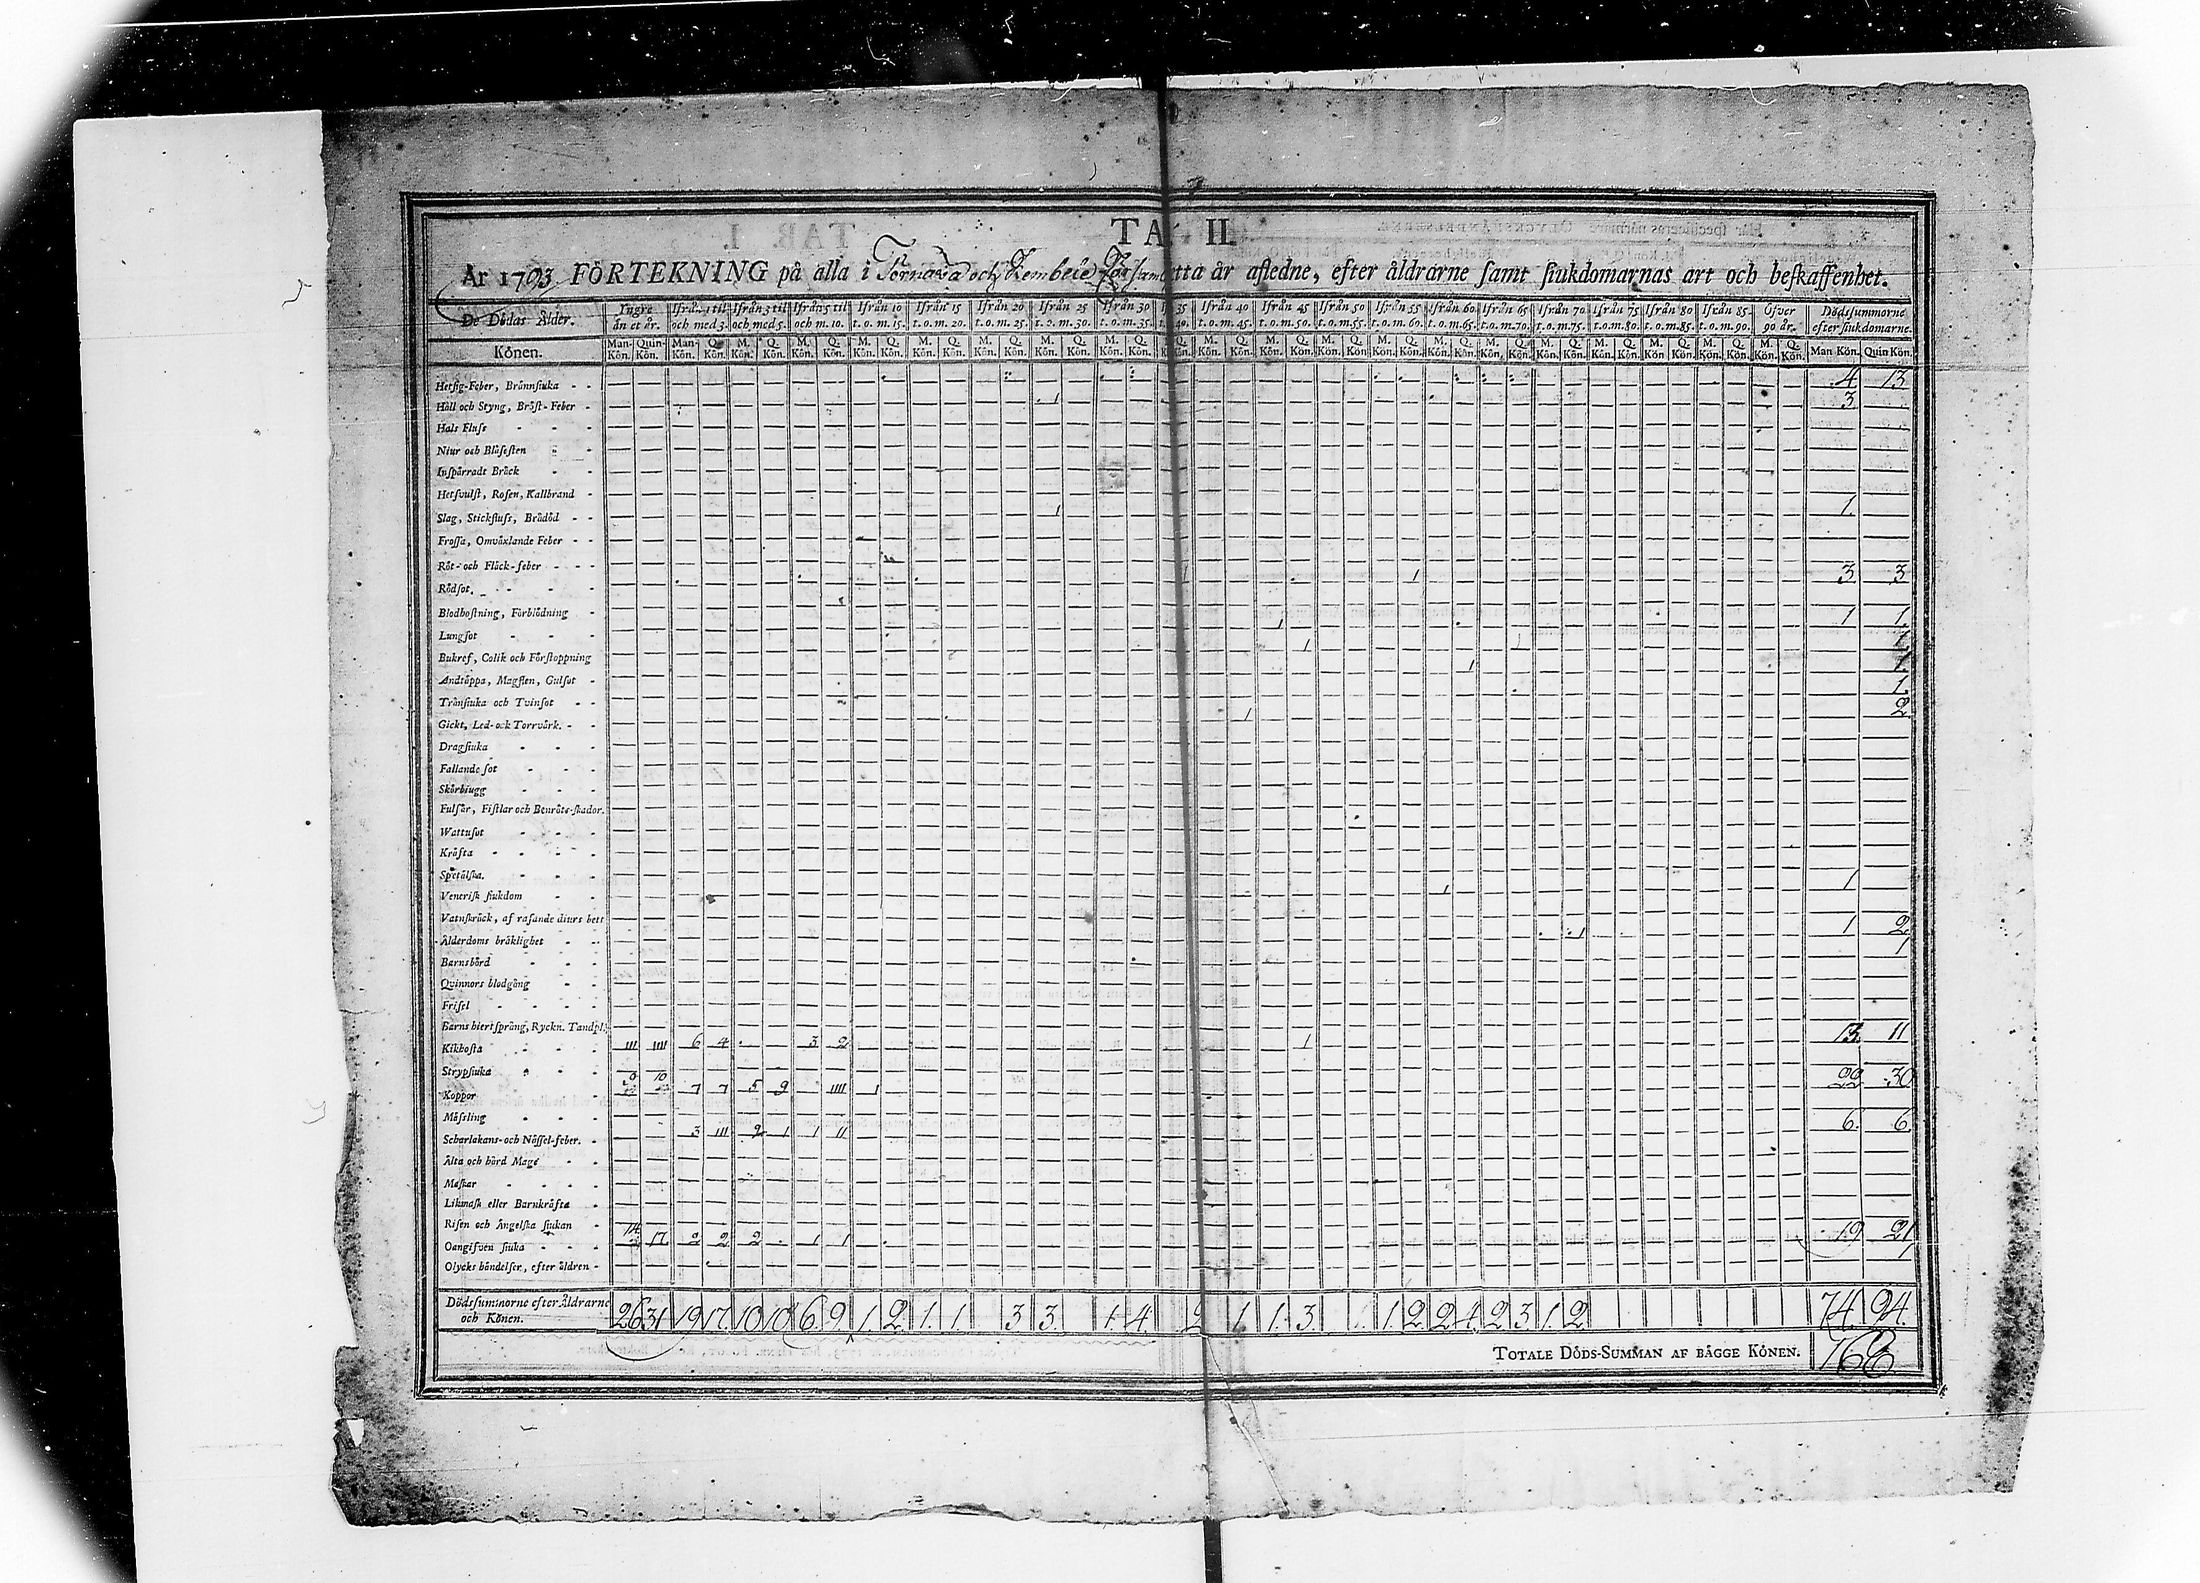 TAB. II.
År 1793 FÖRTEKNING på alla i Tornava och Kembele detta år aflednе, efter åldrarne samt siukdomarnas art och beskaffenhet.
De Dödas Ålder. Yngre än et år. Ifrån 1 til och med 3. Ifrån 3 til och med 5. Ifrån 5 til och m. 10. Ifrån 10 t.o.m. 15. Ifrån 15 t.o.m. 20. Ifrån 20 t.o.m. 25. Ifrån 25 t.o.m. 30. Ifrån 30 t.o.m. 35. 35 40. Ifrån 40 t.o.m. 45. Ifrån 45 t.o.m. 50. Ifrån 50 t.o.m. 55. Ifrån 55 t.o.m. 60. Ifrån 60 t.o.m. 65. Ifrån 65 t.o.m. 70. Ifrån 70 t.o.m. 75. Ifrån 75 t.o.m. 80. Ifrån 80 t.o.m. 85. Ifrån 85. t.o.m. 90. Öfver 90 år. Dödssummorne efter siukdomarne.
Könen. Man-Kön. Quin-Kön. Man-Kön. Q. Kön. M. Kön. Q. Kön. M. Kön. Q. Kön. M. Kön. Q. Kön. M. Kön. Q. Kön. M. Kön. Q. Kön. M. Kön. Q. Kön. M. Kön. Q. Kön. Q. Kön. M. Kön. Q. Kön. M. Kön. Q. Kön. M. Kön. Q. Kön. M. Kön. Q. Kön. M. Kön. Q. Kön. M. Kön. Q. Kön. M. Kön. Q. Kön. M. Kön. Q. Kön. M. Kön. Q. Kön. M. Kön. Q. Kön. M. Kön. Q. Kön. Man Kön. Quin Kön.
Hetsig-Feber, Brännsiuka - - 4 13
Håll och Styng, Bröst-Feber - 1 3
Hals Fluss - - -
Niur och Blåsesten - -
Inspärradt Bråck - -
Hetsvulst, Rosen, Kallbrand -
Slag, Stickfluss, Brådöd - - 1 1.
Frossa, Omväxlande Feber - -
Röt- och Fläck-feber - - -
Rödsot. - - - - 1 1 3 3
Blodhostning, Förblödning - 1 1
Lungsot - - - 1
Bukref, Colik och Förstoppning 1 1 1
Andtäppa, Magsten, Gulsot - 1 1
Tränsiuka och Tvinsot - - 1
Gickt, Led- och Torrvärk. - - 1 2
Dragsiuka - - -
Fallande sot - - -
Skörbiugg - - -
Fulsår, Fistlar och Benröte-skador.
Wattusot - - -
Kräfta - - - -
Spetälska. - - -
Venerisk siukdom - - 1 1
Vatnskräck, af rasande diurs bett
Ålderdoms bräklighet - - 1 1 2
Barnsbörd - - - 1
Qvinnors blodgång - -
Frisel - - - -
Barns hiertspräng, Ryckn. Tandpl.
Kikhosta - - - III IIII 6 4 3 2 1 13 11
Strypsiuka - - -
Koppor 10 7 7 5 9 IIII 1 22 30
Måssling - - -
Scharlakans- och Nässel-feber. - 3 III 2 1 1 II 6. 6.
Älta och hård Mage - -
Maskar - - - -
Likmask eller Barnkräfta -
Risen och Ängelska siukan -
Oangifven siuka - - - 14 17 2 2 2 1 1 19 21
Olycks händelser, efter åldren - 1
Dödssummorne efter Åldrarne och Könen. 26 31 19 17. 10 10 6. 9 1. 2. 1. 1 3 3. 1. 4. 2 1 1. 3. 1. 2 2 4. 2 3 1. 2 74. 94.
TOTALE DÖDS-SUMMAN AF BÅGGE KÖNEN. 168